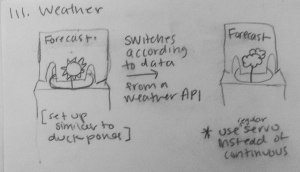 III. Weather
Forecast.
Switches
according
to data
from a
weather API
Forecast
[set up
similar to
duck ponds]
regular
* use servo
instead of
continuous